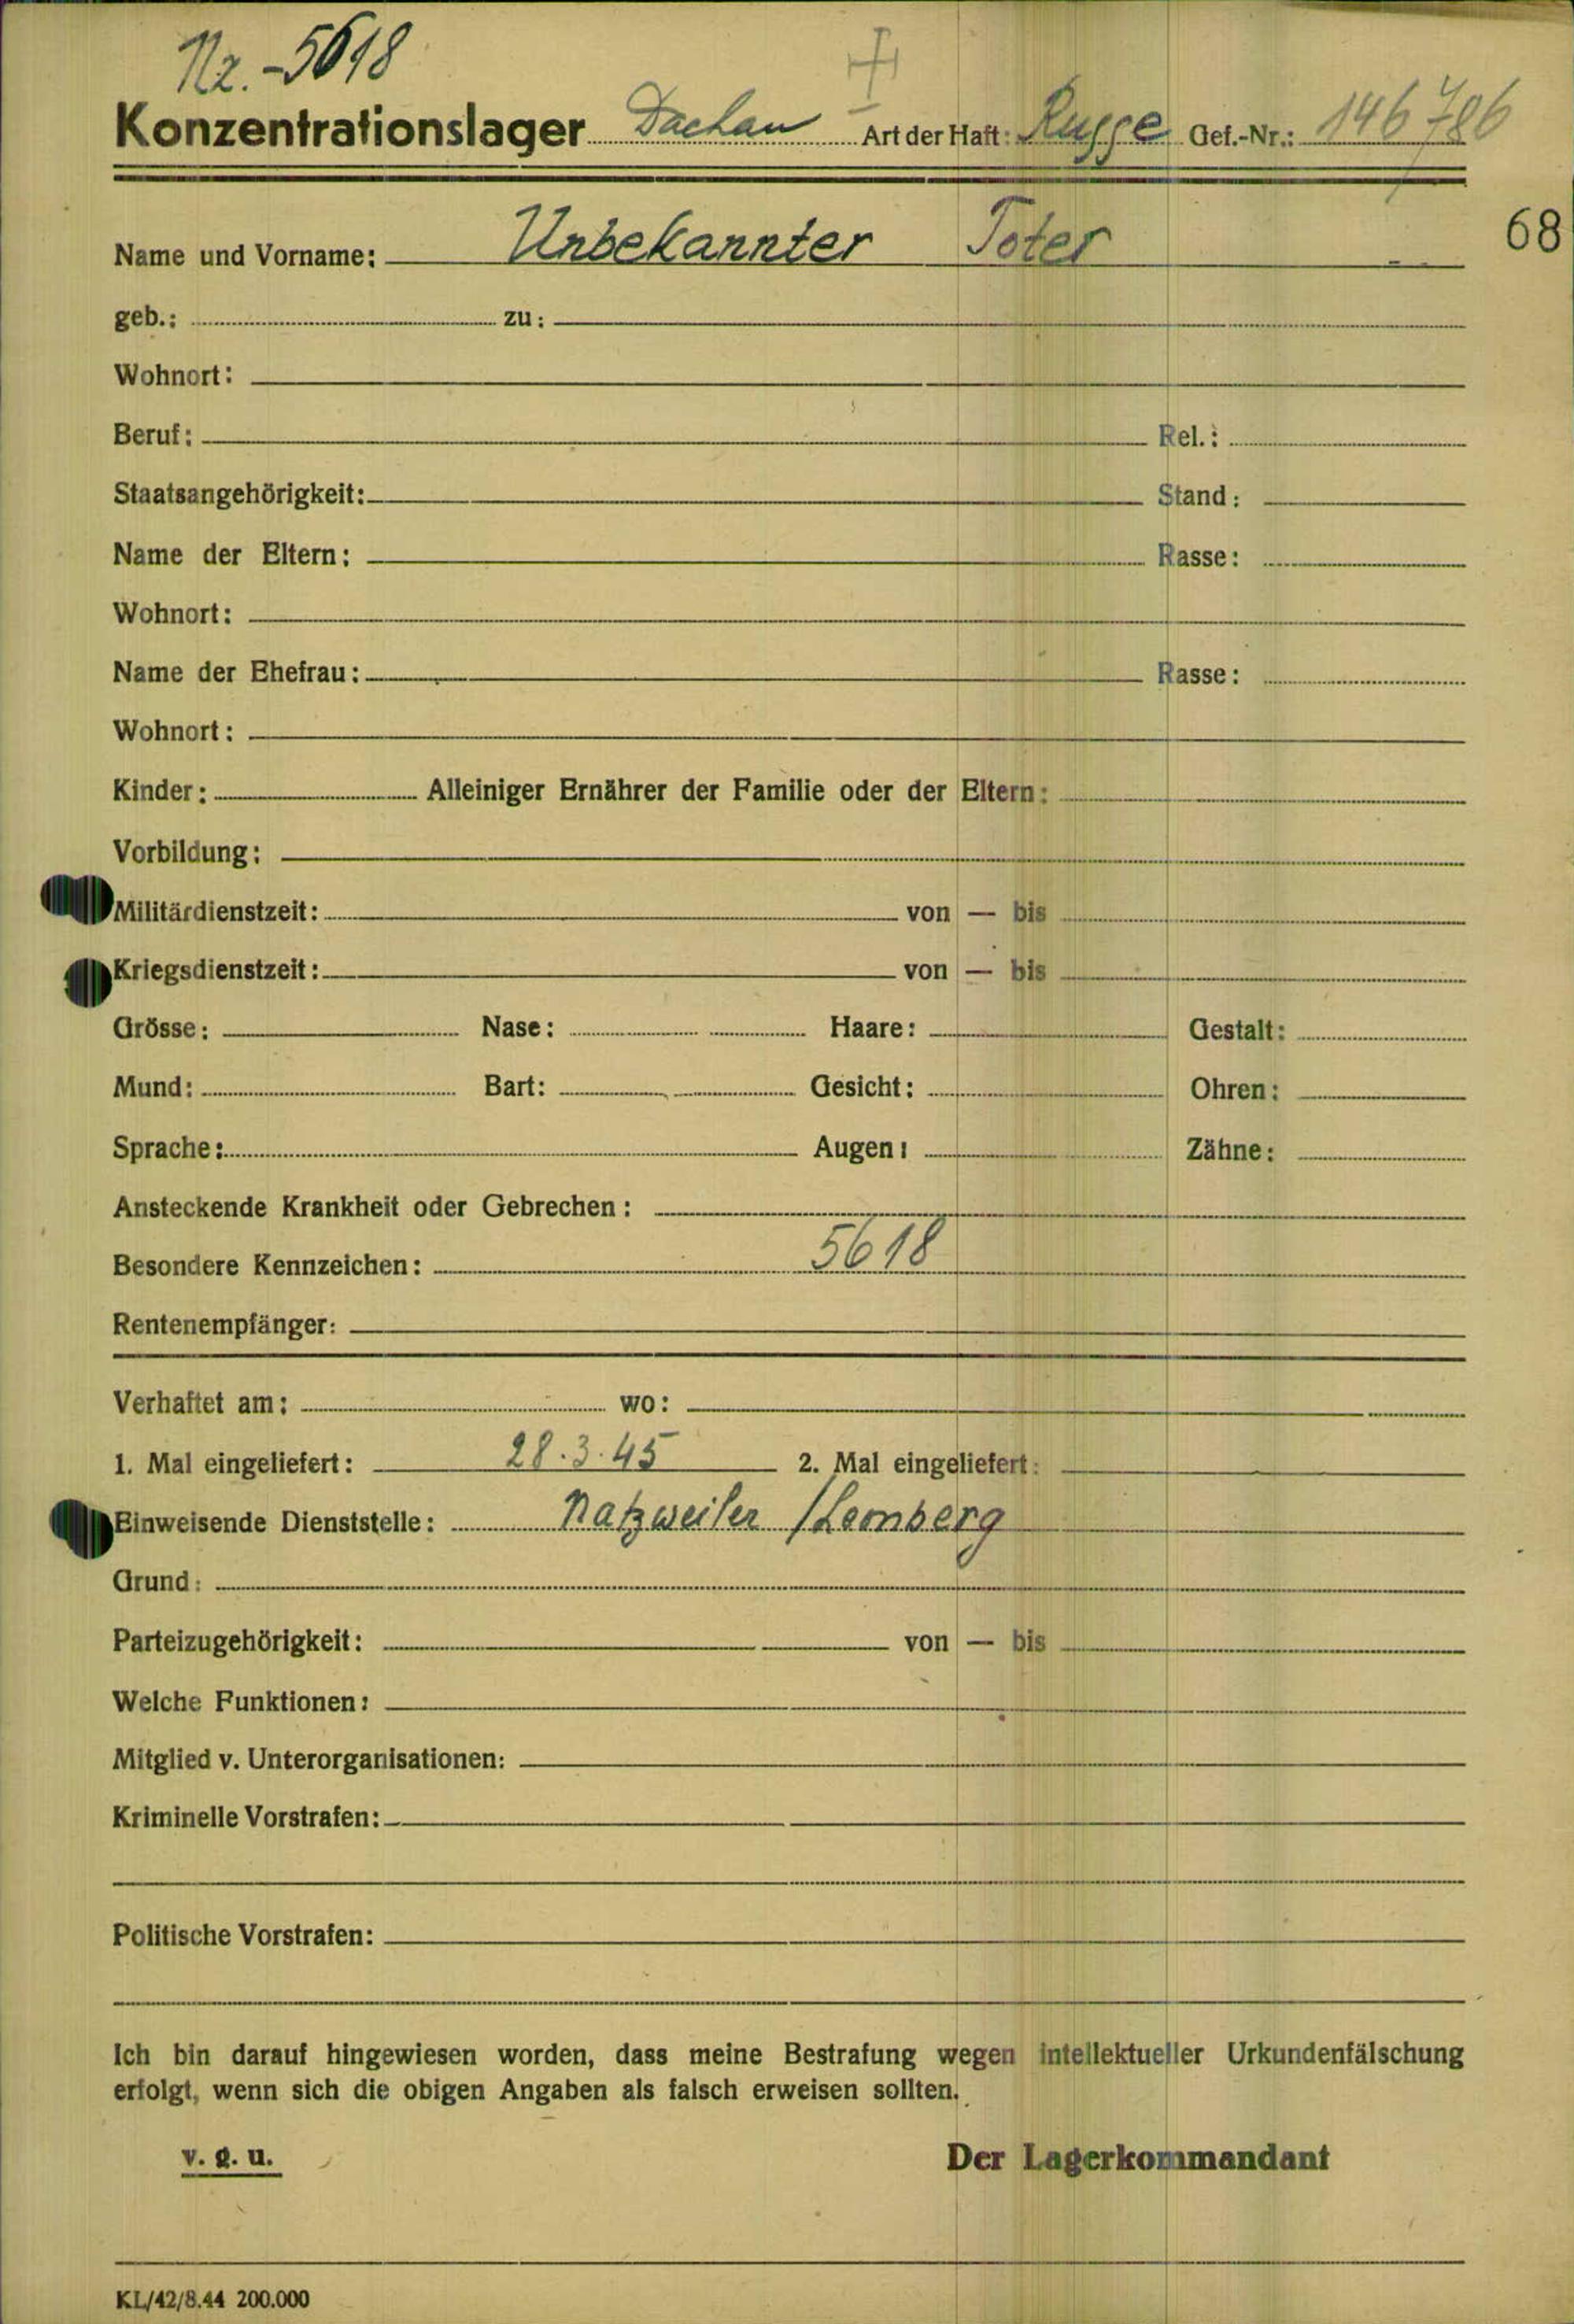 Nr. - 5618
Konzentrationslager Dachau Art der Haft: Russe Gef.-Nr.: 146786
68
Name und Vorname: Unbekannter Toter
geb.: zu:
Wohnort:
Beruf: Rel.:
Staatsangehörigkeit: Stand:
Name der Eltern: Rasse:
Wohnort:
Name der Ehefrau: Rasse:
Wohnort:
Kinder: Alleiniger Ernährer der Familie oder der Eltern:
Vorbildung:
Militärdienstzeit: von — bis
Kriegsdienstzeit: von — bis
Grösse: Nase: Haare: Gestalt:
Mund: Bart: Gesicht: Ohren:
Sprache: Augen: Zähne:
Ansteckende Krankheit oder Gebrechen:
Besondere Kennzeichen: 5618
Rentenempfänger:
Verhaftet am: wo:
1. Mal eingeliefert: 28.3.45 2. Mal eingeliefert:
Einweisende Dienststelle: Natzweiler /Leonberg
Grund:
Parteizugehörigkeit: von — bis
Welche Funktionen:
Mitglied v. Unterorganisationen:
Kriminelle Vorstrafen:
Politische Vorstrafen:
Ich bin darauf hingewiesen worden, dass meine Bestrafung wegen intellektueller Urkundenfälschung
erfolgt, wenn sich die obigen Angaben als falsch erweisen sollten.
v. g. u. Der Lagerkommandant
KL/42/8.44 200.000